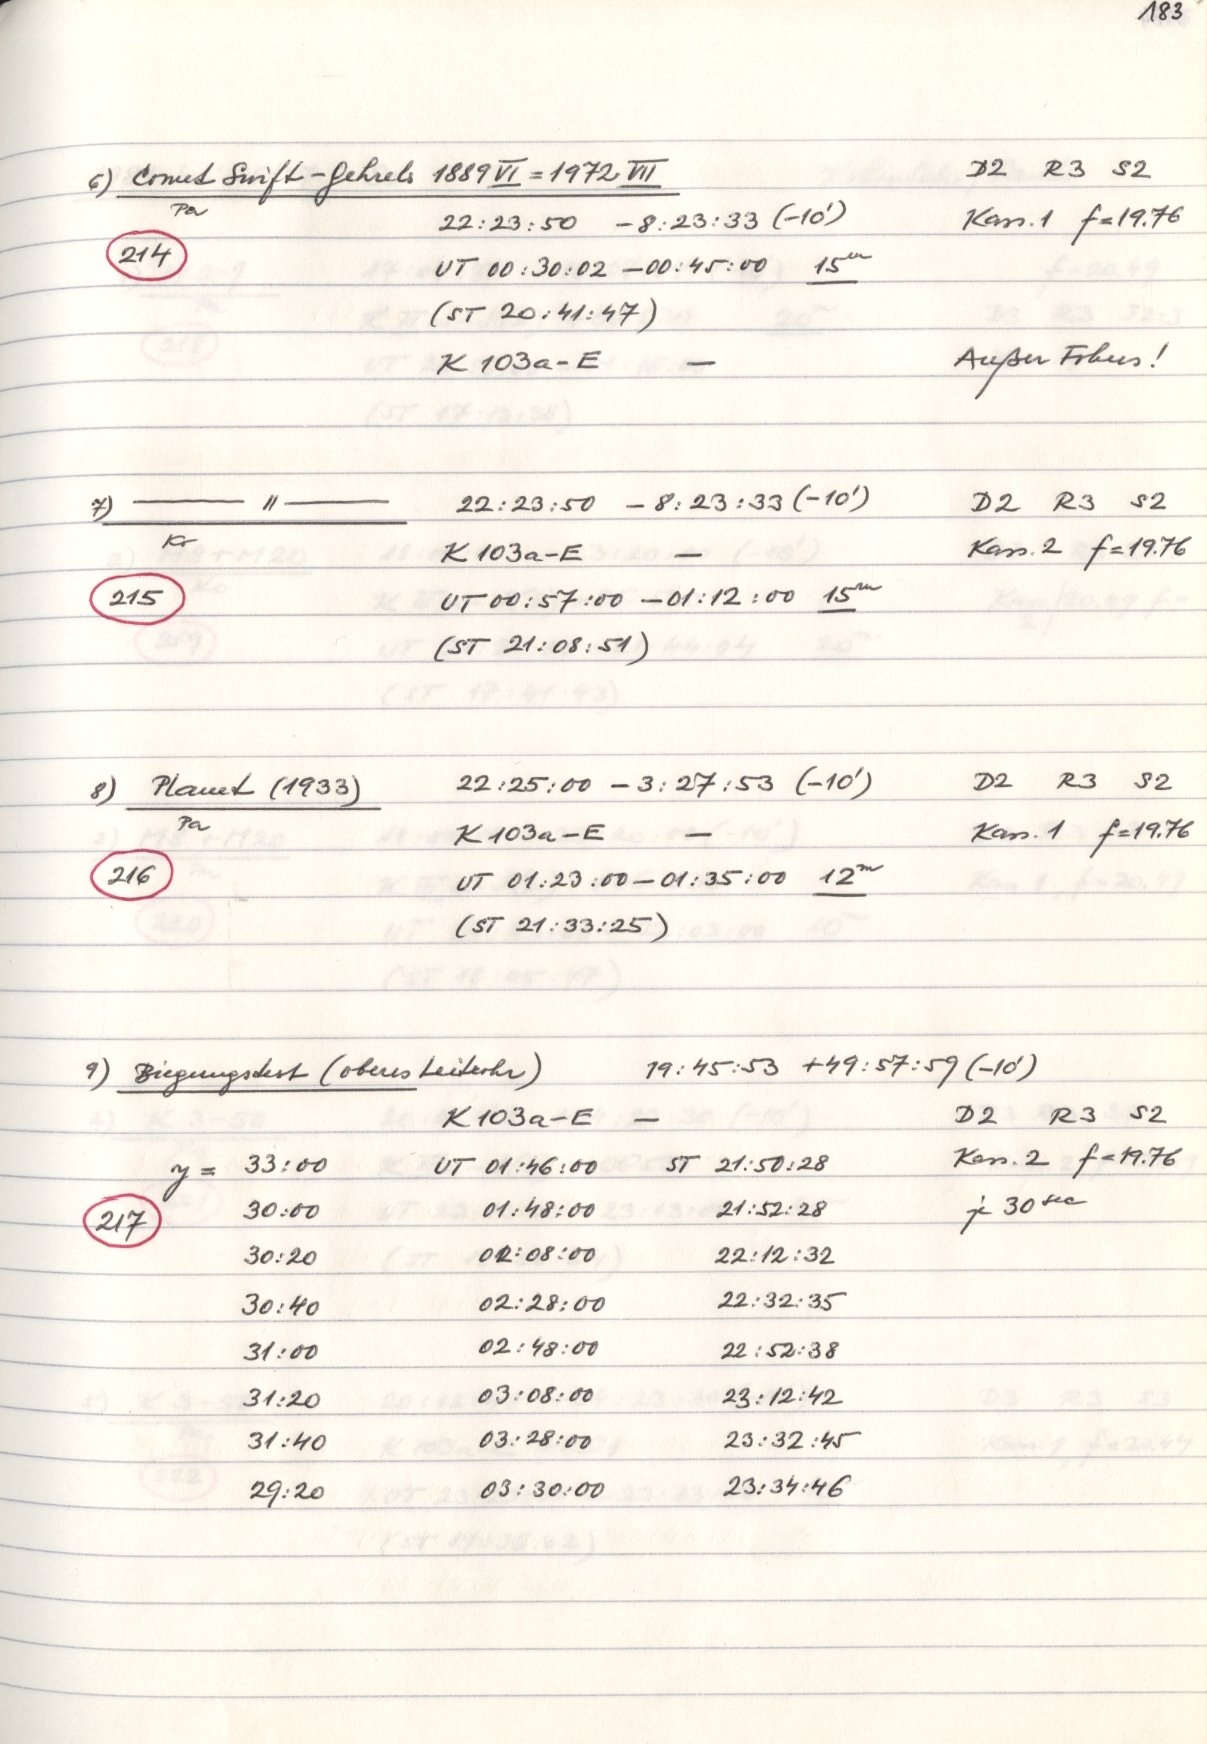 183
6) Comet Swift-Gehrels 1889 VI = 1972 VII D2 R3 S2
Pa 22:23:50 -8:23:33 (-10') Kass. 1 f=19.76
214 UT 00:30:02 -00:45:00 15m
(ST 20:41:47)
K 103a-E — Außer Fokus!
7) — 〃 — 22:23:50 -8:23:33 (-10') D2 R3 S2
Kr K 103a-E — Kass. 2 f=19.76
215 UT 00:57:00 -01:12:00 15m
(ST 21:08:51)
8) Planet (1933) 22:25:00 -3:27:53 (-10') D2 R3 S2
Pa K 103a-E — Kass. 1 f=19.76
216 UT 01:23:00-01:35:00 12m
(ST 21:33:25)
9) Biegungstest (oberes Leitrohr) 19:45:53 +49:57:59 (-10')
K 103a-E — D2 R3 S2
y = 33:00 UT 01:46:00 ST 21:50:28 Kass. 2 f=19.76
217 30:00 01:48:00 21:52:28 je 30 sec
30:20 02:08:00 22:12:32
30:40 02:28:00 22:32:35
31:00 02:48:00 22:52:38
31:20 03:08:00 23:12:42
31:40 03:28:00 23:32:45
29:20 03:30:00 23:34:46